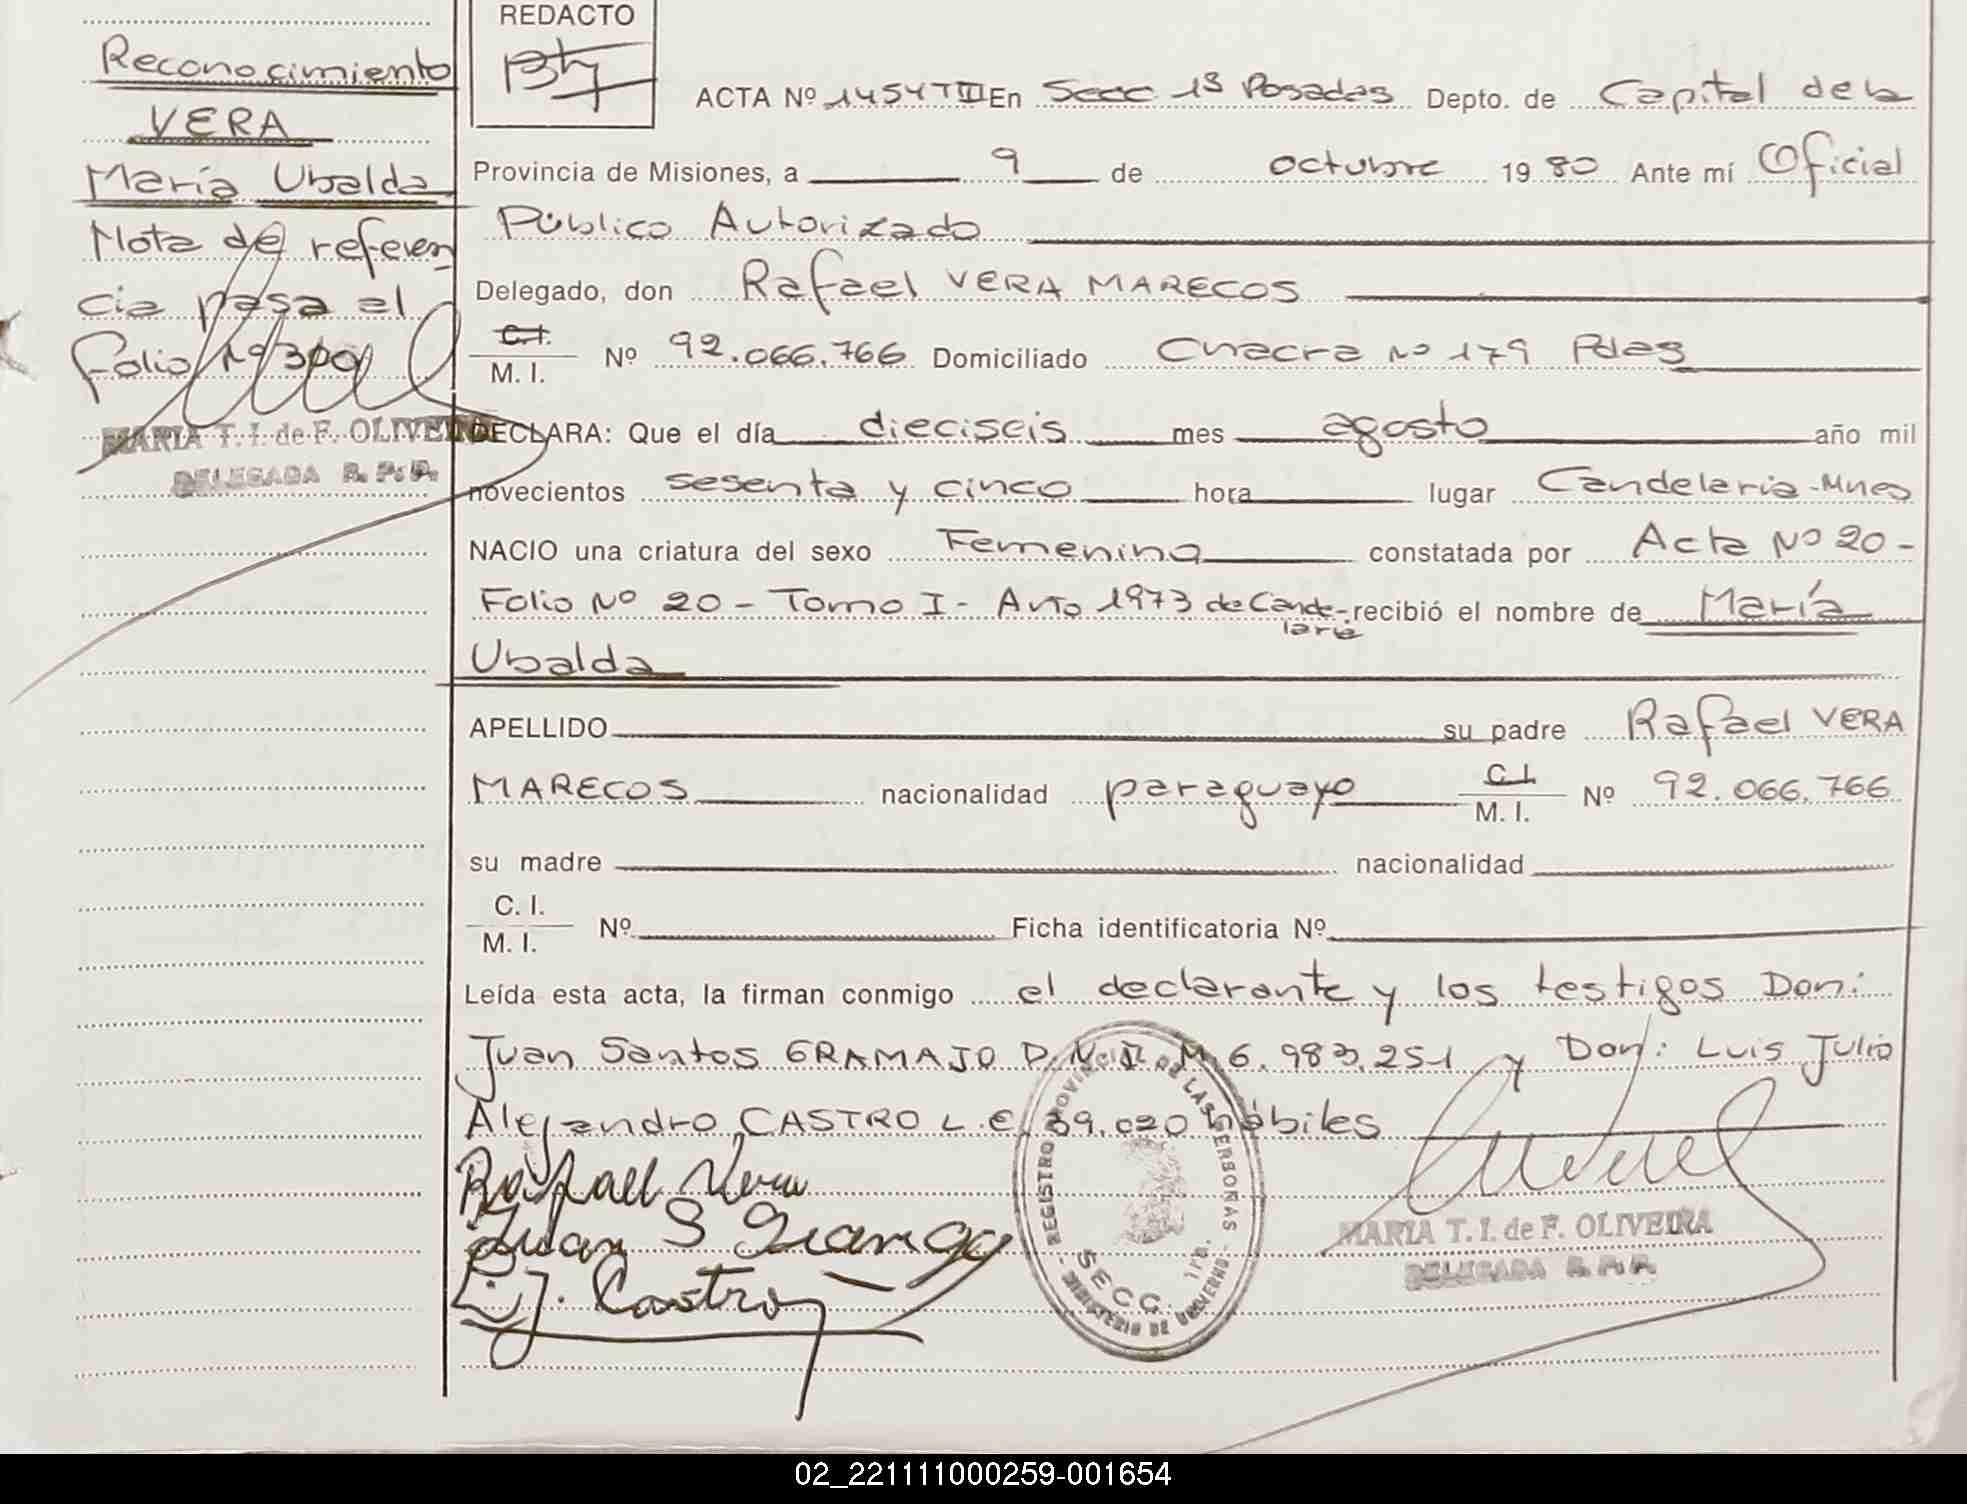 Reconocimiento
VERA
María Ubalda
Nota de referen
cia pasa al
folio Nº 300
MARIA T. I. de F. OLIVEIRA
DELEGADA R. P. P.
REDACTO
ACTA Nº 1454 T III En Secc 1ª Posadas Depto. de Capital de la
Provincia de Misiones, a 9 de octubre 1980 Ante mí Oficial
Público Autorizado
Delegado, don Rafael VERA MARECOS
C.I. M. I. Nº 92.066.766 Domiciliado Chacra Nº 179 Pdas
DECLARA: Que el día dieciseis mes agosto año mil
novecientos sesenta y cinco hora lugar Candelaria-Mnes
NACIO una criatura del sexo Femenino constatada por Acta Nº 20-
Folio Nº 20 - Tomo I - Año 1973 de Cande- recibió el nombre de María
laria
Ubalda
APELLIDO su padre Rafael VERA
MARECOS nacionalidad paraguayo C.I. M. I. Nº 92.066.766
su madre nacionalidad
C. I. M. I. Nº Ficha identificatoria Nº
Leída esta acta, la firman conmigo el declarante y los testigos Don:
Juan Santos GRAMAJO D.N.I. M 6.983.251 y Don: Luis Julio
Alejandro CASTRO L.E. 39.020 hábiles
Rafael Vera
Juan S Gramajo
L J. Castro
REGISTRO PROVINCIAL DE LAS PERSONAS
SECC. 1ra.
- MINISTERIO DE GOBIERNO -
MARIA T. I. de F. OLIVEIRA
DELEGADA R. P. P.
02_221111000259-001654